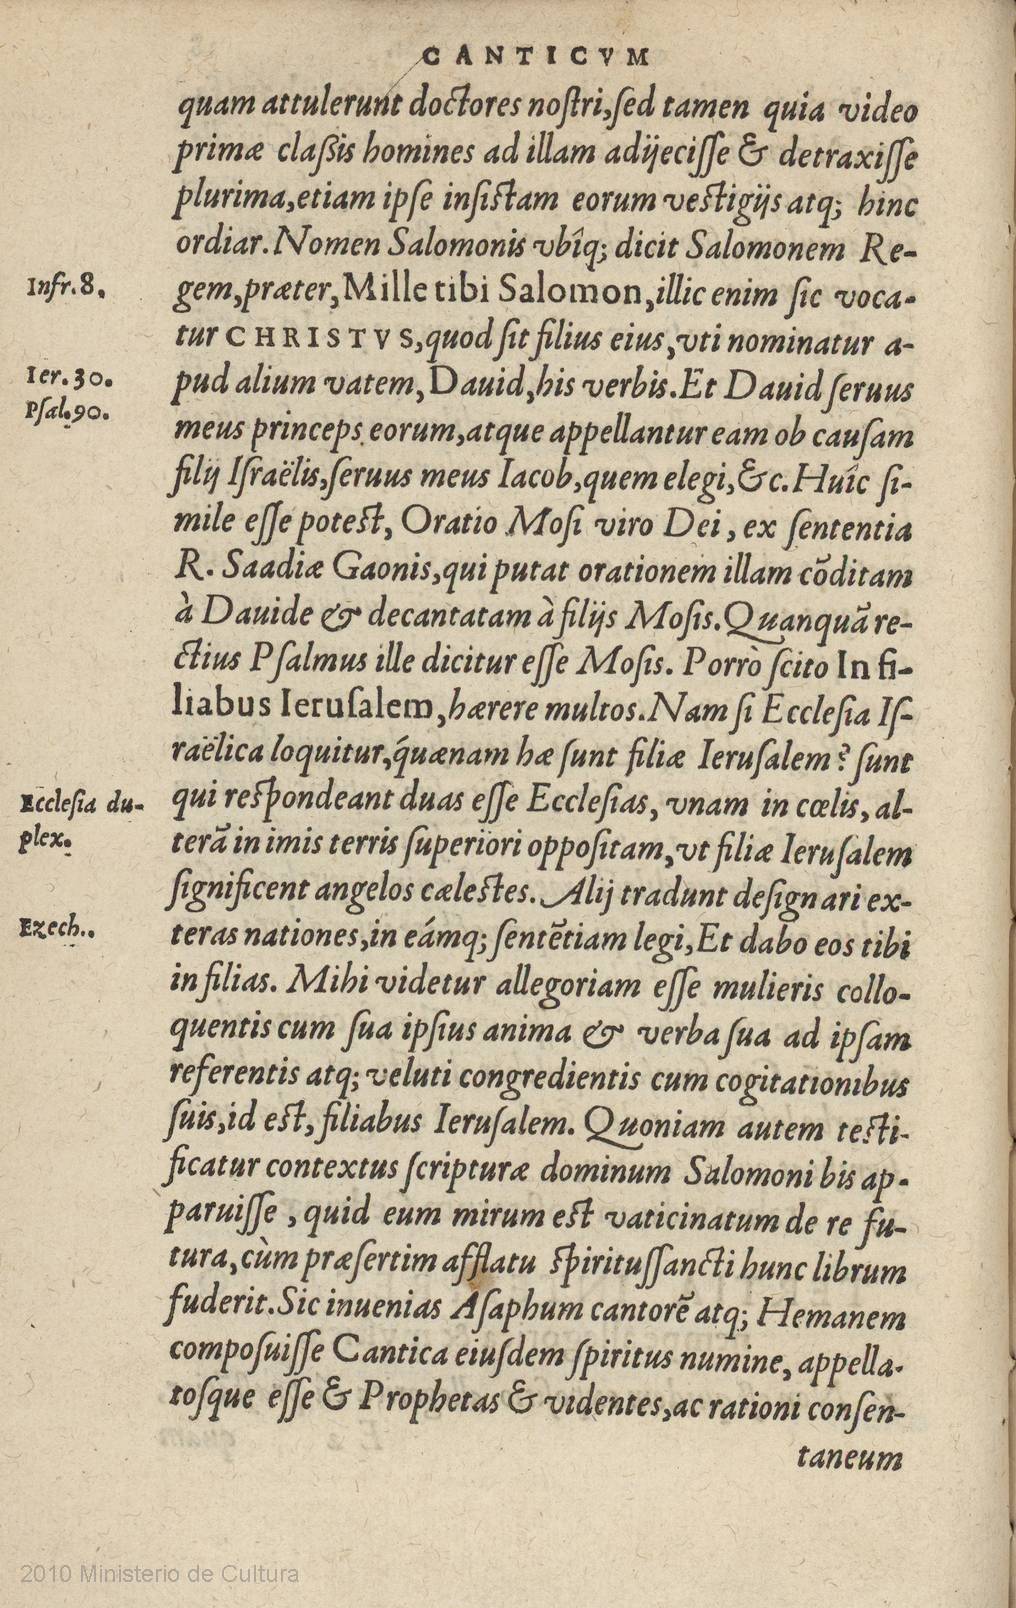 CANTICVM
quam attulerunt doctores nostri, sed tamen quia video
primæ claßis homines ad illam adijecisse & detraxisse
plurima, etiam ipse insistam eorum vestigijs atq; hinc
ordiar. Nomen Salomonis vbîq; dicit Salomonem Re-
Infr. 8. gem, præter, Mille tibi Salomon, illic enim sic voca-
tur CHRISTVS, quod sit filius eius, vti nominatur a-
Ier. 30. pud alium vatem, Dauid, his verbis. Et Dauid seruus
Psal. 90. meus princeps eorum, atque appellantur eam ob causam
filij Israëlis, seruus meus Iacob, quem elegi, &c. Huîc si-
mile esse potest, Oratio Mosi viro Dei, ex sententia
R. Saadiæ Gaonis, qui putat orationem illam cõditam
à Dauide & decantatam à filijs Mosis. Quanquã re-
ctius Psalmus ille dicitur esse Mosis. Porrò scito In fi-
liabus Ierusalem, hærere multos. Nam si Ecclesia Is-
raëlica loquitur, quænam hæ sunt filiæ Ierusalem? sunt
Ecclesia du- qui respondeant duas esse Ecclesias, vnam in cœlis, al-
plex. terã in imis terris superiori oppositam, vt filiæ Ierusalem
significent angelos cælestes. Alij tradunt designari ex-
Ezech.. teras nationes, in eámq; sentẽtiam legi, Et dabo eos tibi
in filias. Mihi videtur allegoriam esse mulieris collo-
quentis cum sua ipsius anima & verba sua ad ipsam
referentis atq; veluti congredientis cum cogitationibus
suis, id est, filiabus Ierusalem. Quoniam autem testi-
ficatur contextus scripturæ dominum Salomoni bis ap-
paruisse, quid eum mirum est vaticinatum de re fu-
tura, cùm præsertim afflatu spiritussancti hunc librum
fuderit. Sic inuenias Asaphum cantorẽ atq; Hemanem
composuisse Cantica eiusdem spiritus numine, appella-
tosque esse & Prophetas & videntes, ac rationi consen-
taneum
2010 Ministerio de Cultura